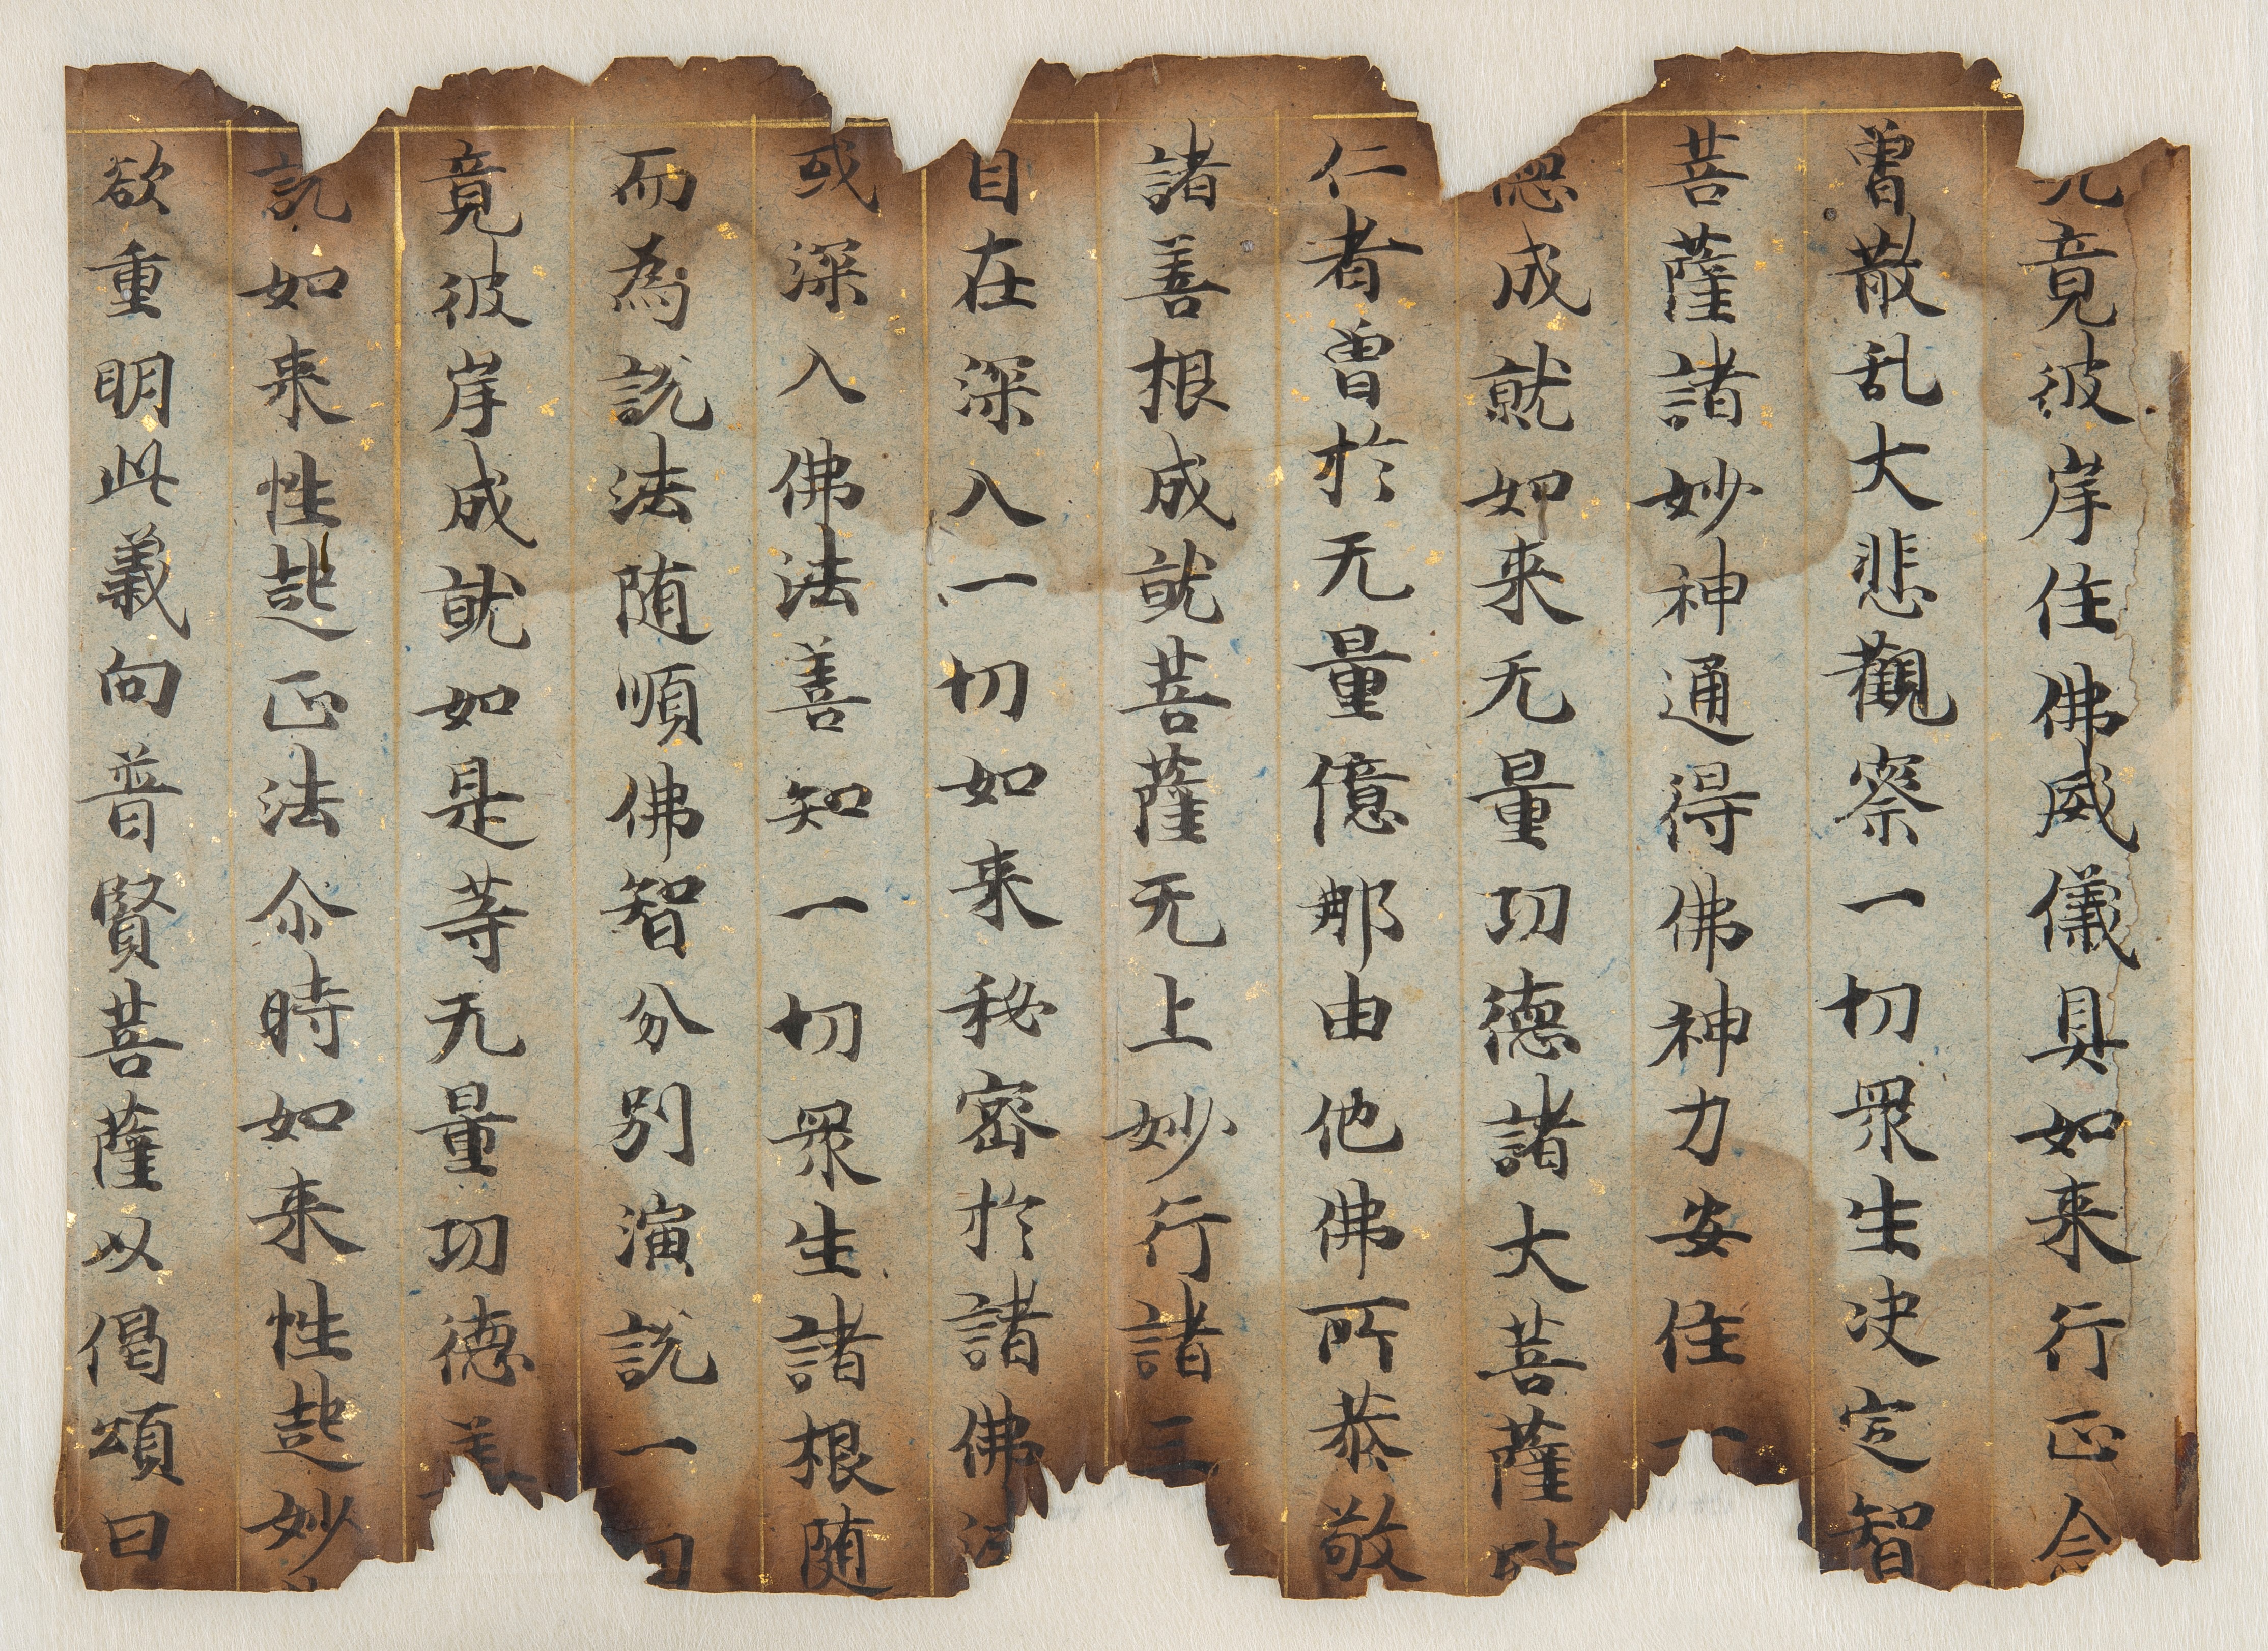 竟彼岸住佛威儀具如来行正念
曽散乱大悲觀察一切衆生决定智
菩薩諸妙神通得佛神力安住一
成就如来无量功德諸大菩薩
仁者曽於无量億那由他佛所恭敬
諸善根成就菩薩无上妙行諸三
自在深入一切如来秘密於諸佛
或深入佛法善知一切衆生諸根随
而為説法随順佛智分別演説一切
竟彼岸成就如是等无量功德
説如来性起正法尒時如来性起妙
欲重明此義向普賢菩薩以偈頌曰